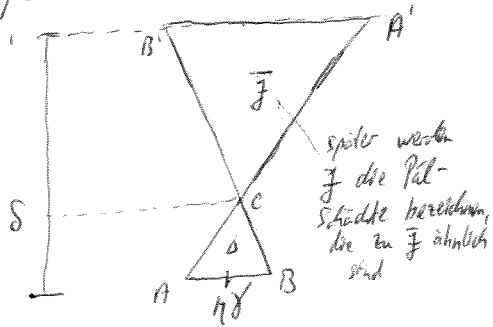 B'
A'
F̄
später werden
F die Pál-
Schächte bezeichnen,
die zu F̄ ähnlich
sind
C
δ
Δ
A
B
ηγ